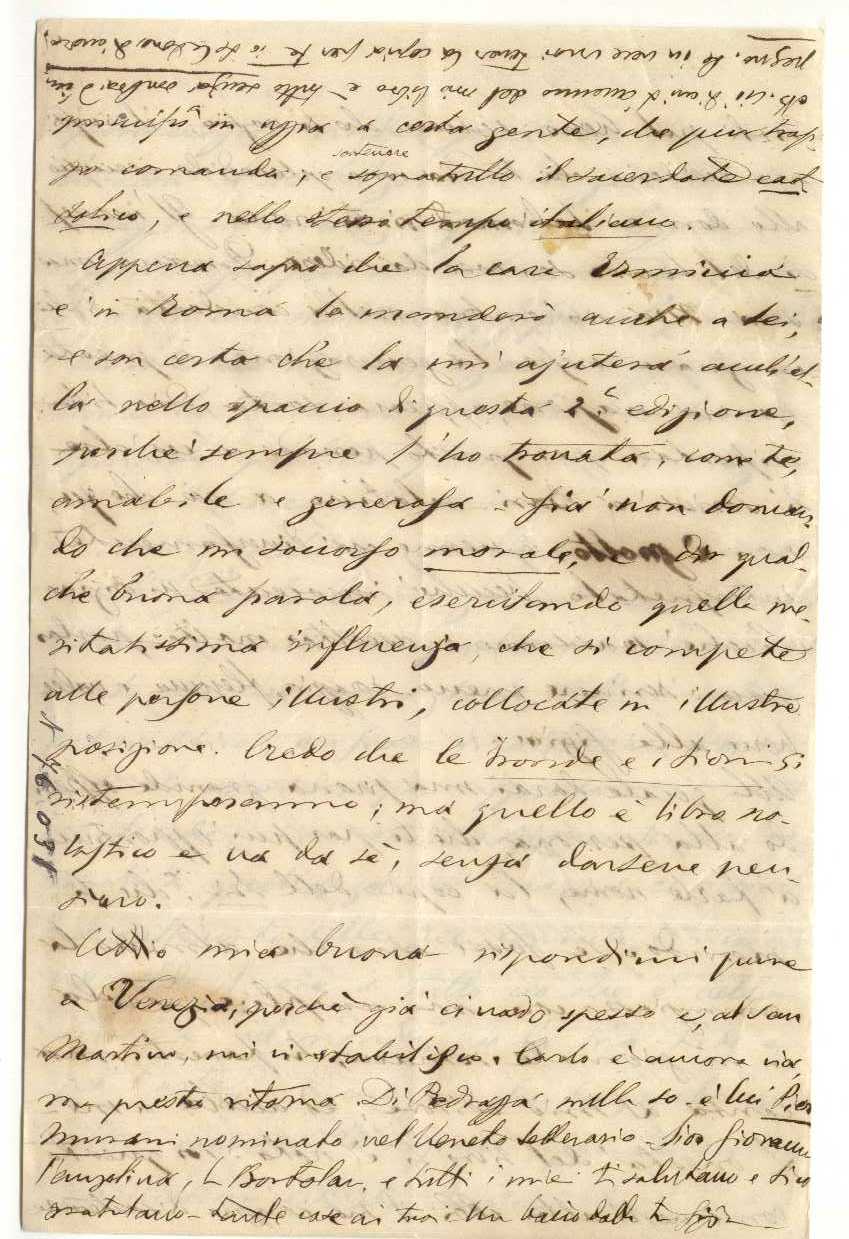 in uggia a certa gente, che pur trop-
po comanda, e sostenere sopratutto il sacerdote cat-
tolico, e nello stesso tempo italiano.
Appena sapro che la cara Erminia
è in Roma la manderò anche a lei,
e son certa che la mi ajuterà anch'el-
la nello spaccio di questa 2.a edizione,
perchè sempre l'ho trovata, come te,
amabile e generosa - Già non doman-
do che un soccorso morale, e dir qual-
che buona parola, esercitando quella me-
ritatissima influenza, che si compete
alle persone illustri, collocate in illustre
posizione. Credo che le Fronde e i Fiori si
ristamperanno; ma quello è libro sco-
lastico e va da sè, senza darsene pen-
siero.
Addio mia buona rispondimi pure
a Venezia, perchè già ci vado spesso e, al San
Martino, mi vi stabilisco. Carlo è ancora via,
ma presto ritorna. Di Pedrazza nulla so - è lui Pier
Murani nominato nel Veneto Letterario - Sior Giovanni
l'Angelina, la Bortolan e tutti i miei ti salutano e si con
gratulano - tante cose ai tuoi. Un bacio dalla tua
NB. Ciò di cui t'accenno del mio libro è tutto senza ombra d'im
pegno. Se in vece vuoi tener la copia per te io te la dono di cuore.